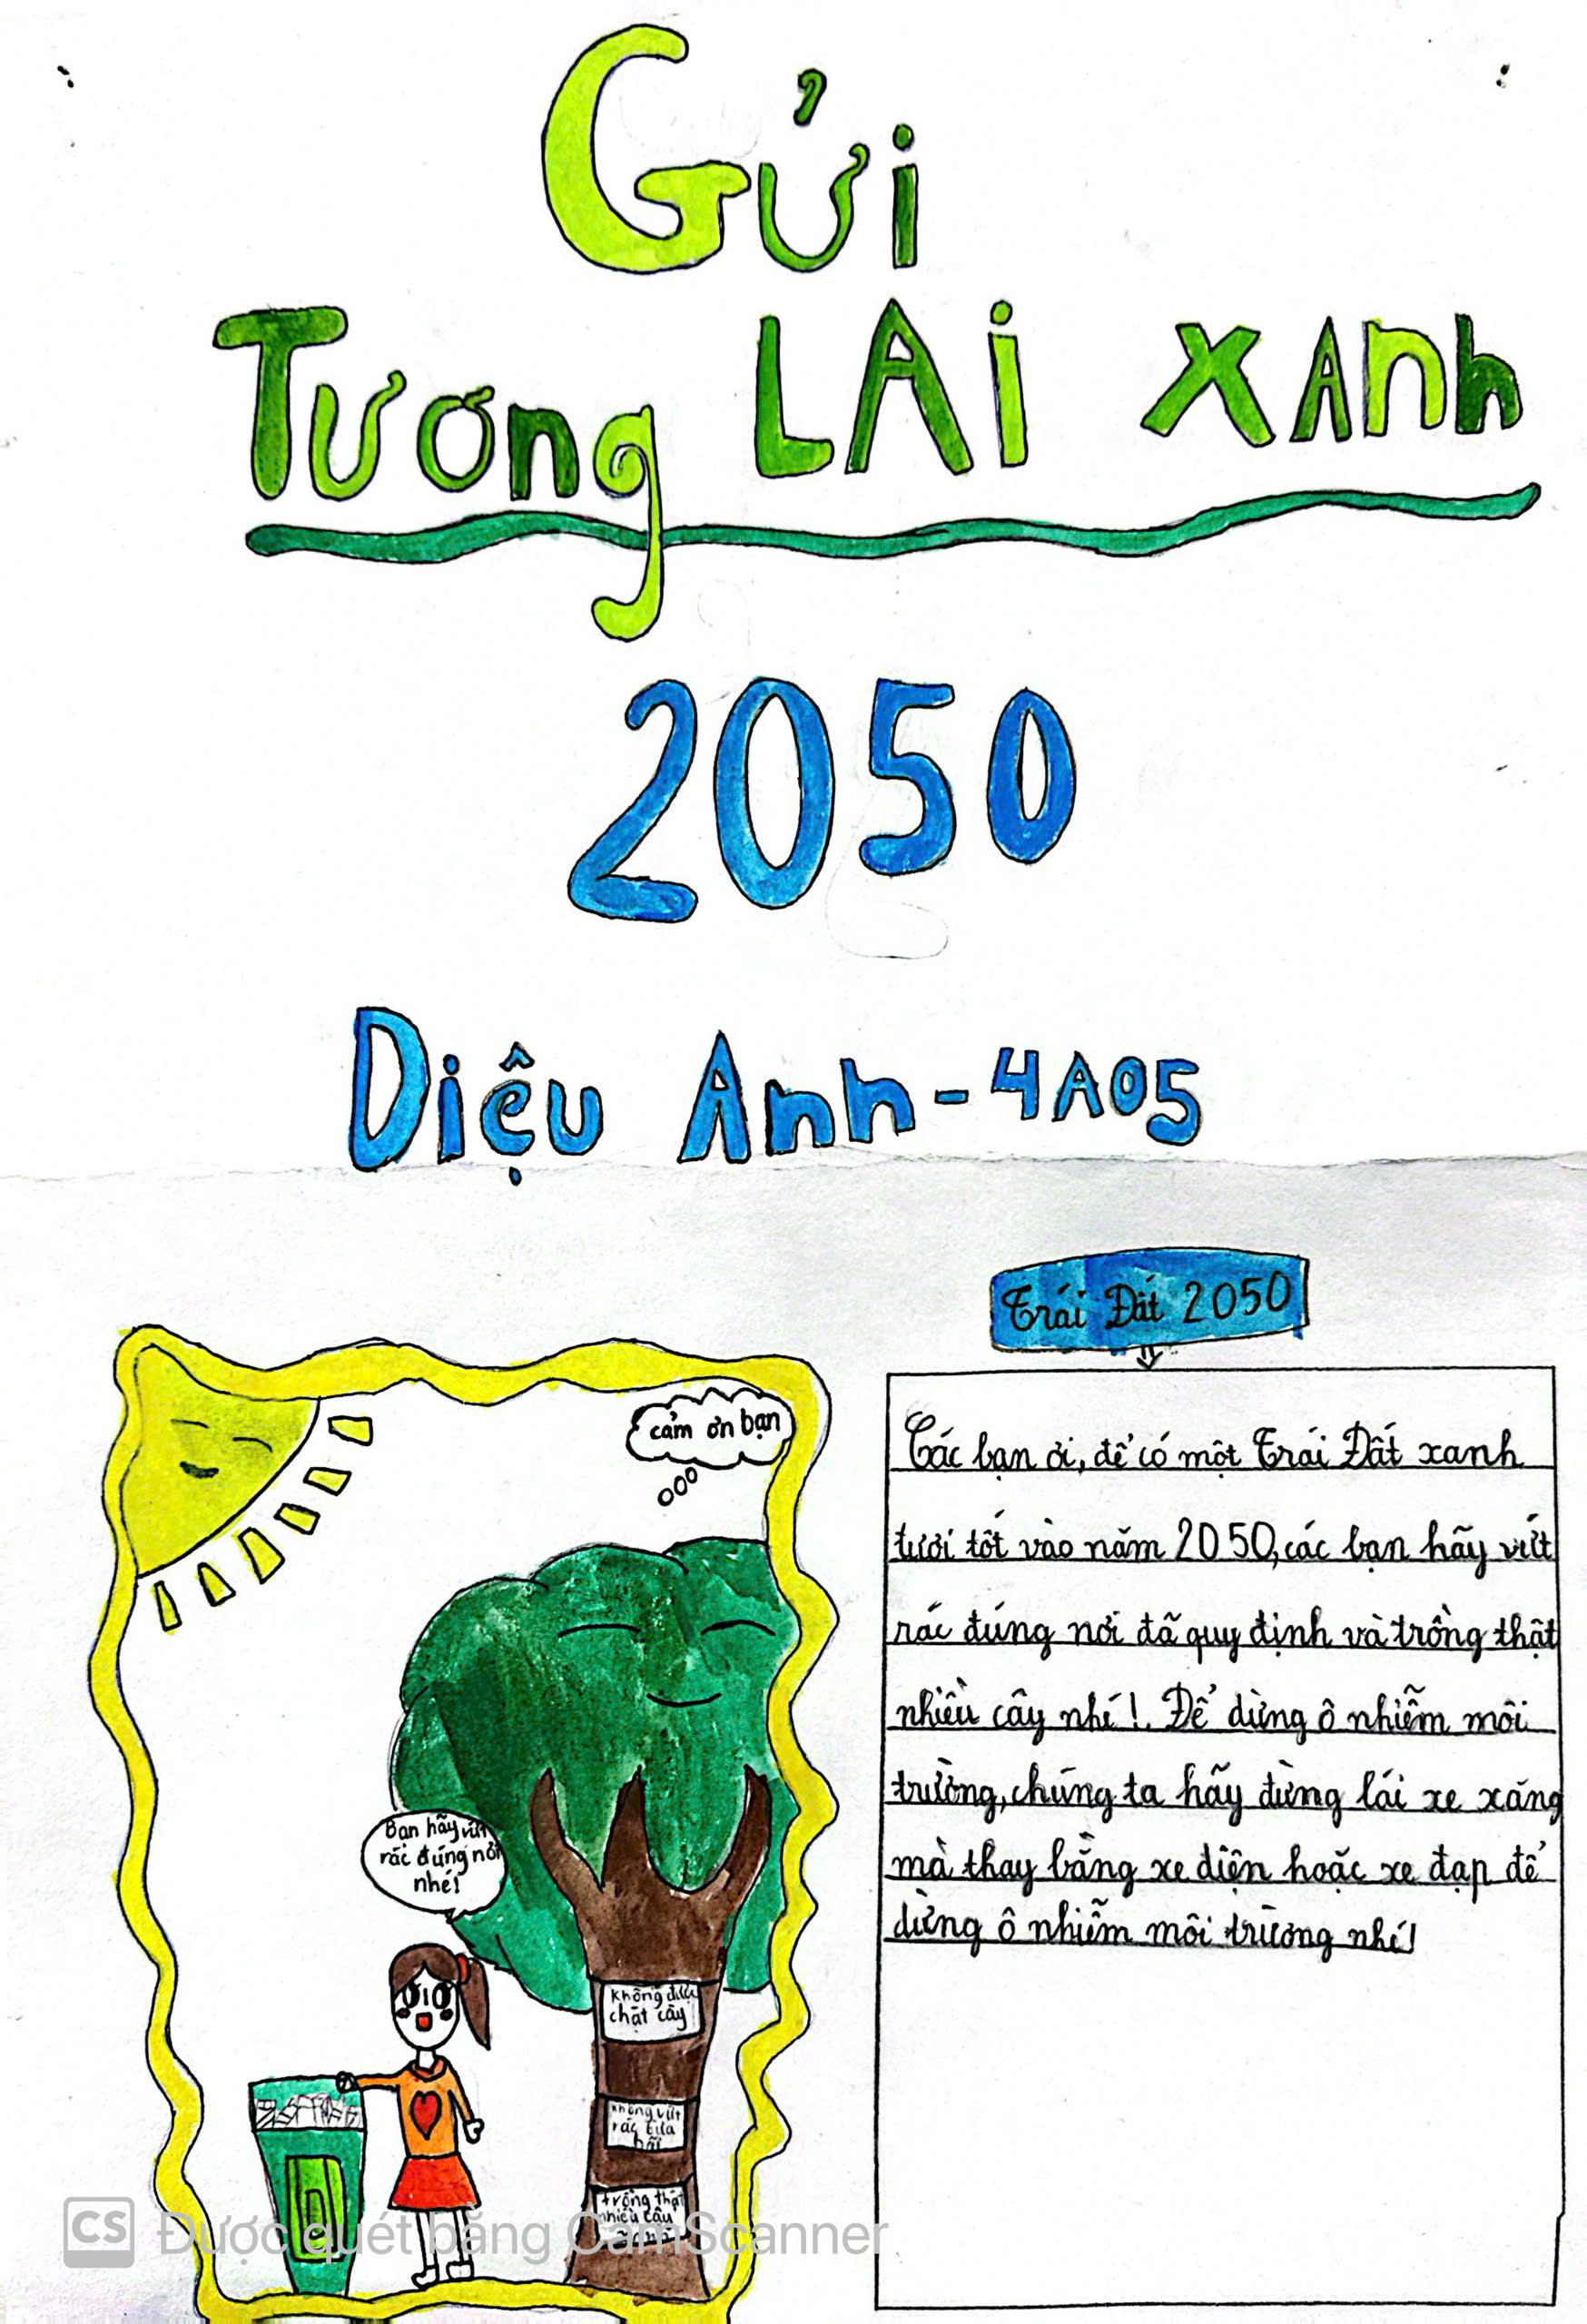 Gửi
Tương LAi XAnh
2050
Diệu Anh - 4A05
Trái Đất 2050
cảm ơn bạn
Các bạn ơi, để có một Trái Đất xanh
tươi tốt vào năm 2050, các bạn hãy vứt
rác đúng nơi đã quy định và trồng thật
nhiều cây nhé!. Để dừng ô nhiễm môi
trường, chúng ta hãy dừng lái xe xăng
mà thay bằng xe điện hoặc xe đạp để
dừng ô nhiễm môi trường nhé!
Bạn hãy vứt
rác đúng nơi
nhé!
Không được
chặt cây
Không vứt
rác bừa
bãi
trồng thật
nhiều cây
CS Được quét bằng CamScanner